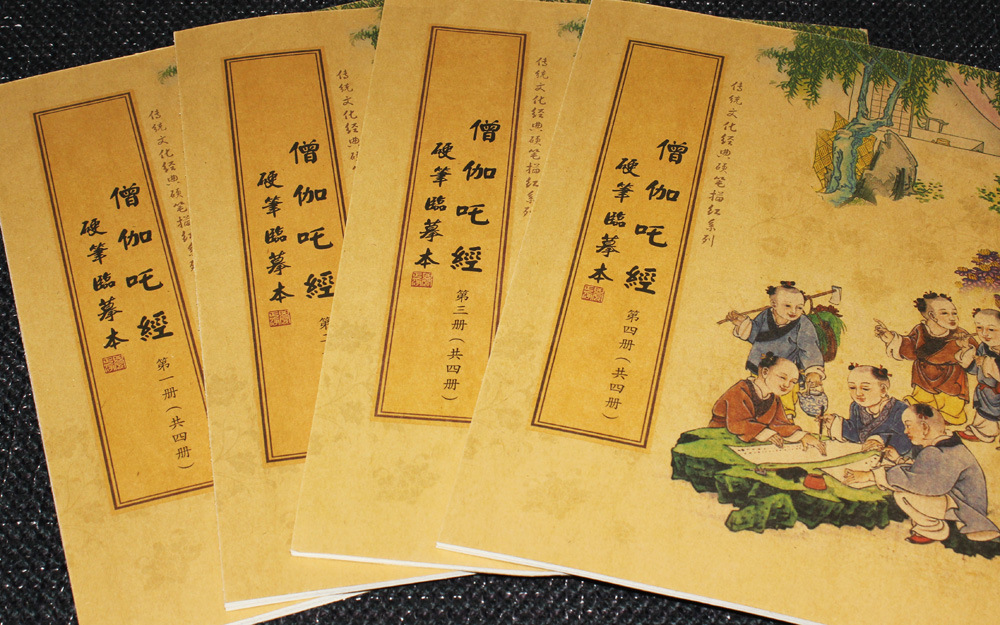 僧伽吒經
硬筆臨摹本
第一册(共四册)
传统文化经典硕笔描红系
僧伽吒經
硬筆臨摹本
第二
传统文化经典硕
僧伽吒經
硬筆臨摹本
第三册(共四册)
传统文化经典硕笔描红系列
僧伽吒經
硬筆臨摹本
第四册(共四册)
传统文化经典硕笔描红系列